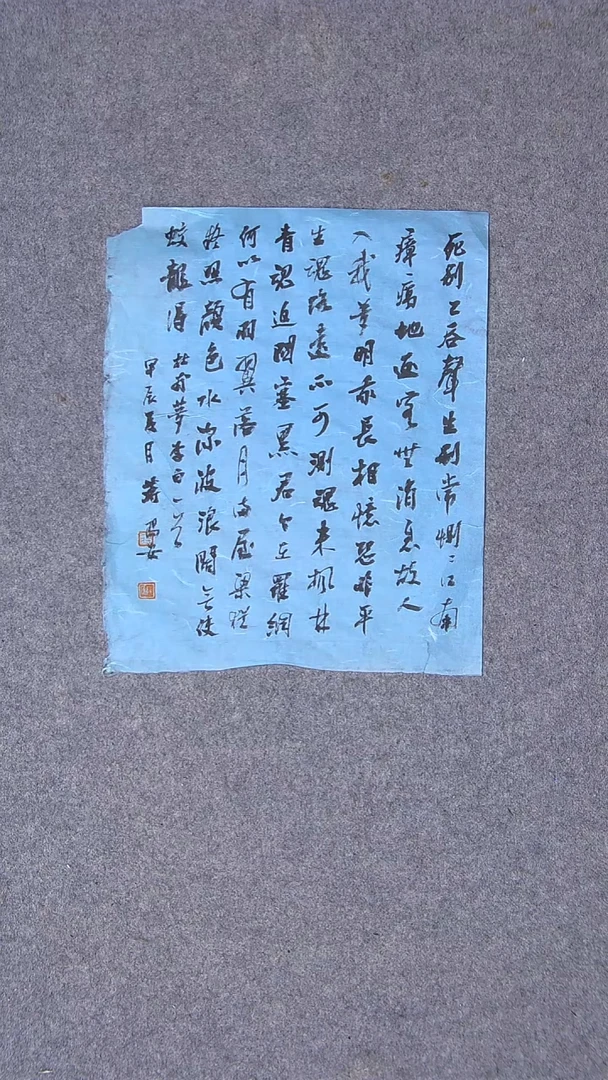 死別已吞聲生別常惻〻江南
瘴癘地逐客無消息故人
入我夢明我長相憶恐非平
生魂路遠不可測魂來楓林
青魂返關塞黑君今在羅網
何以有羽翼落月滿屋梁猶
疑照顏色水深波浪闊無使
蛟龍得
杜甫夢李白一首
甲辰夏月